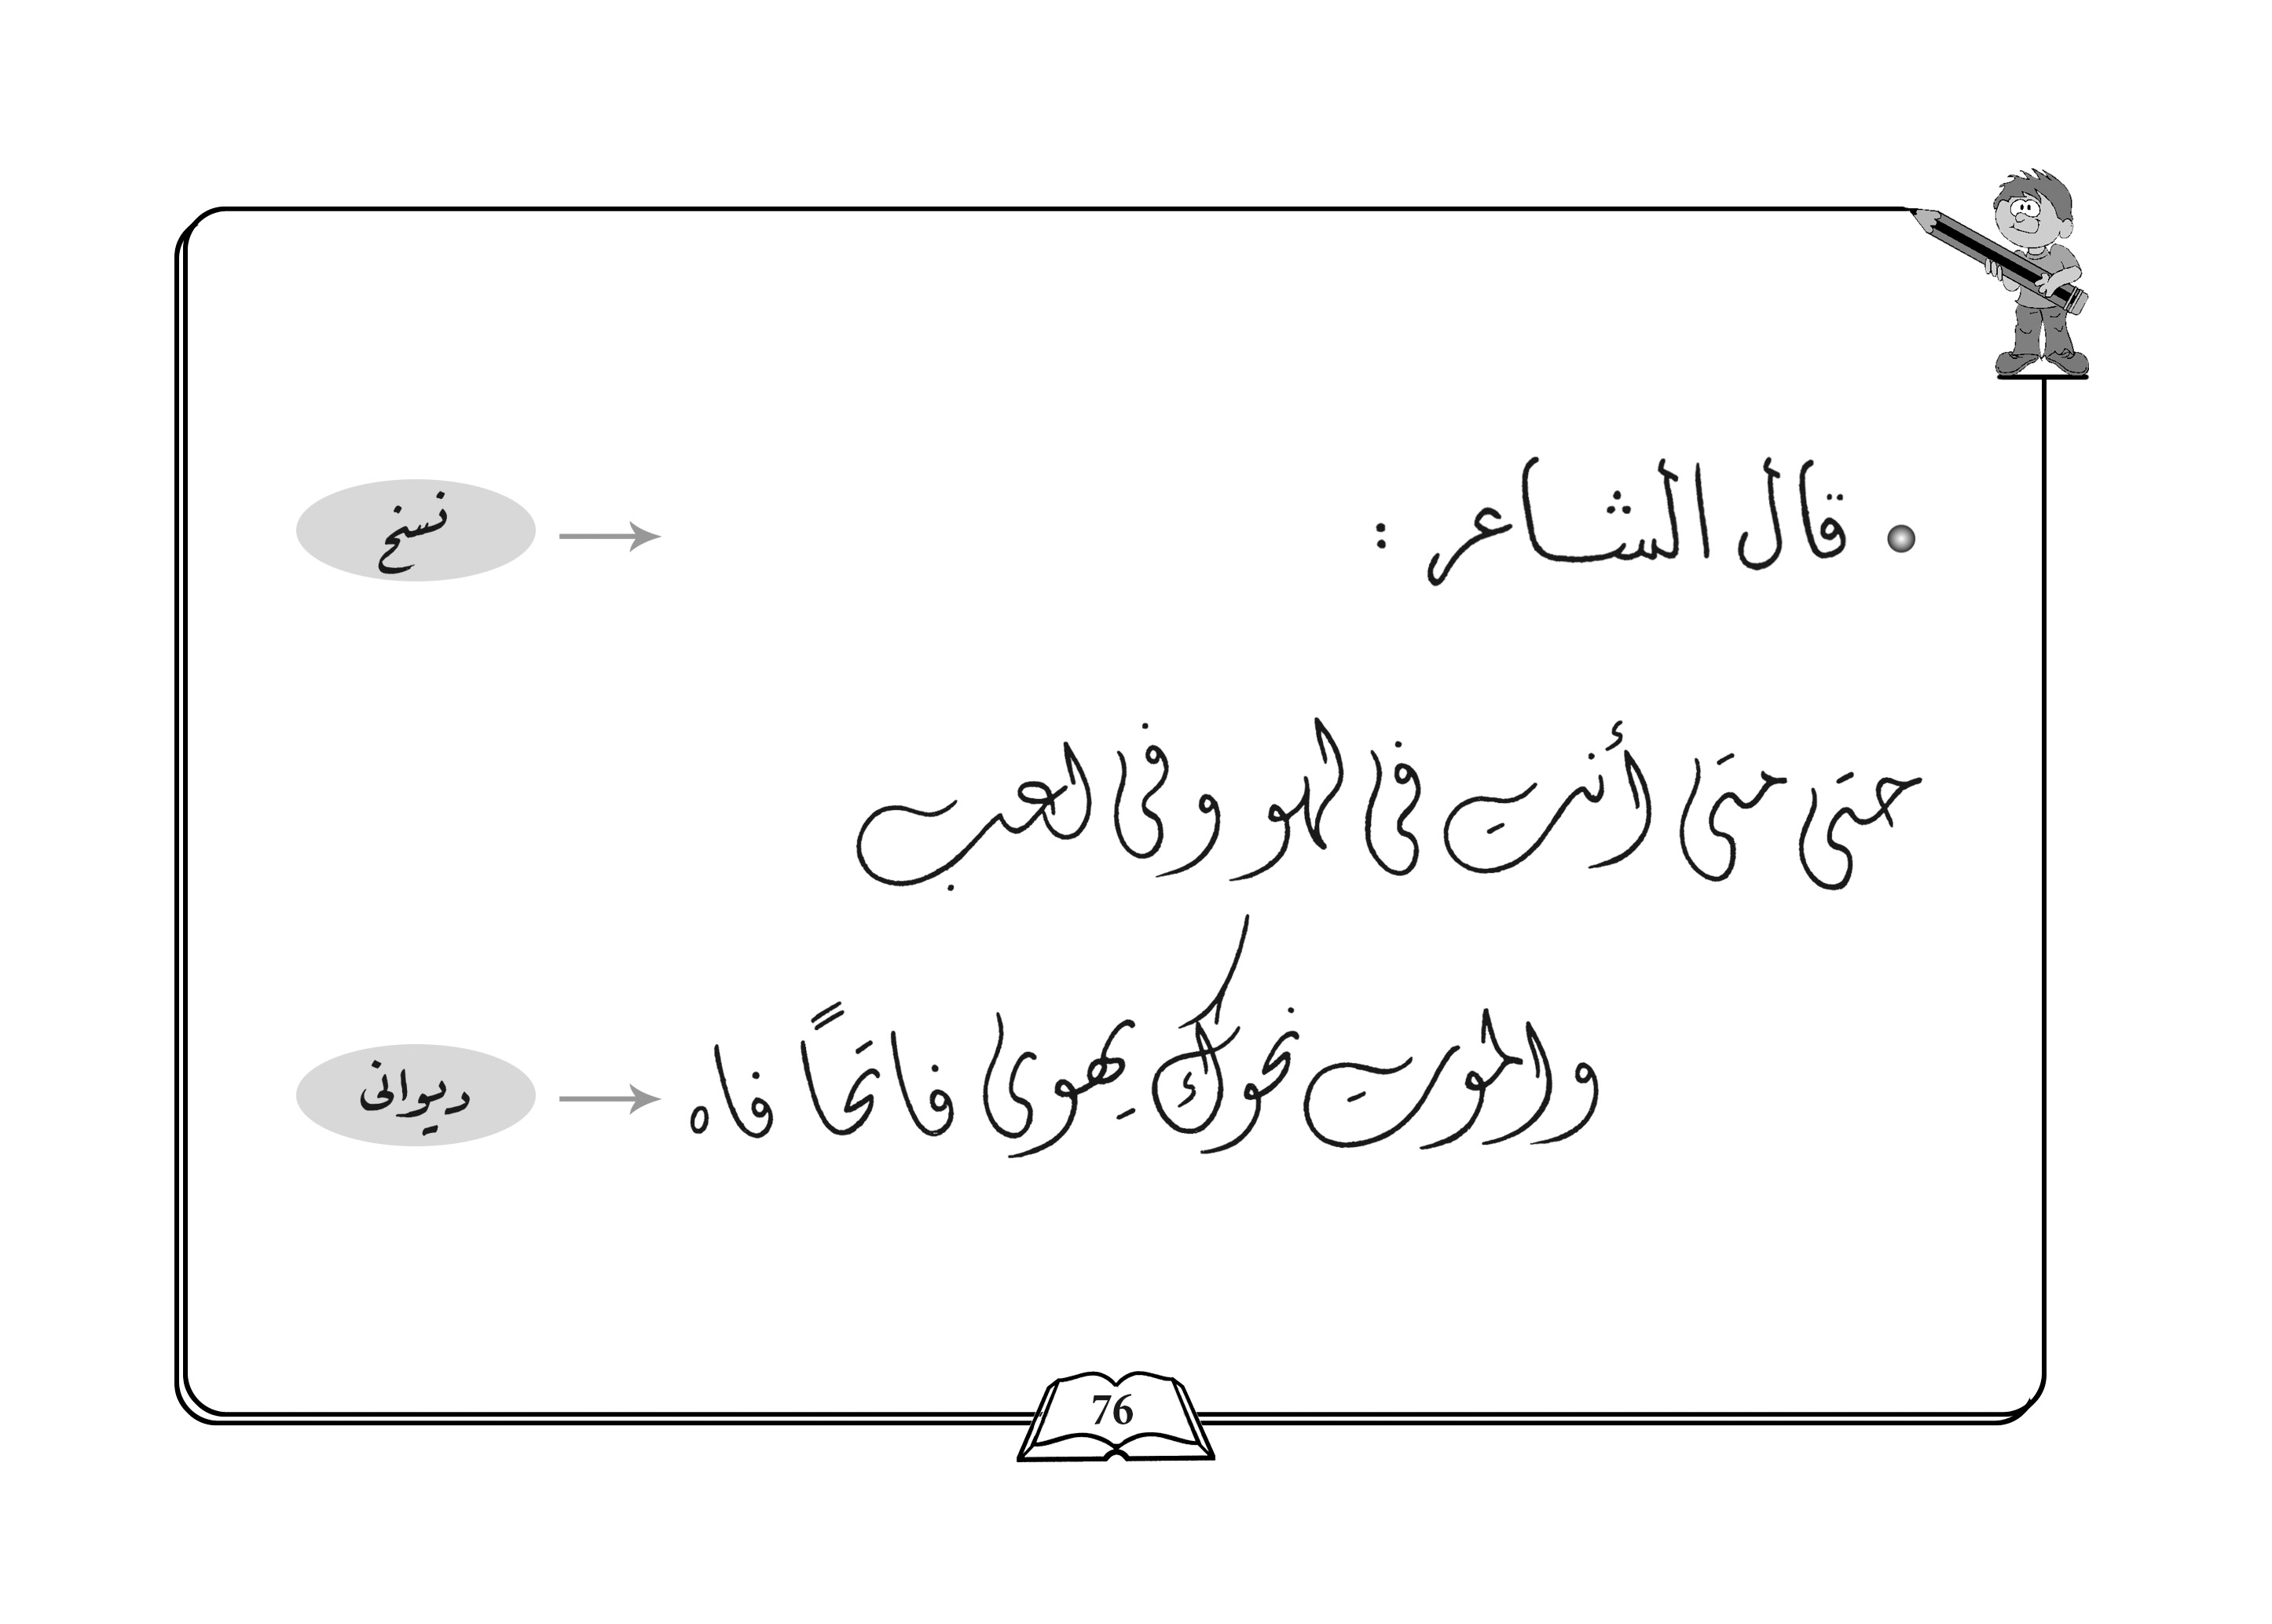 • قال الشاعر :
نسخ
حتَى حتَى أنت فى لهو وفى لعب
والموت نحوك يهوى فاتحًا فاه
ديوانى
76